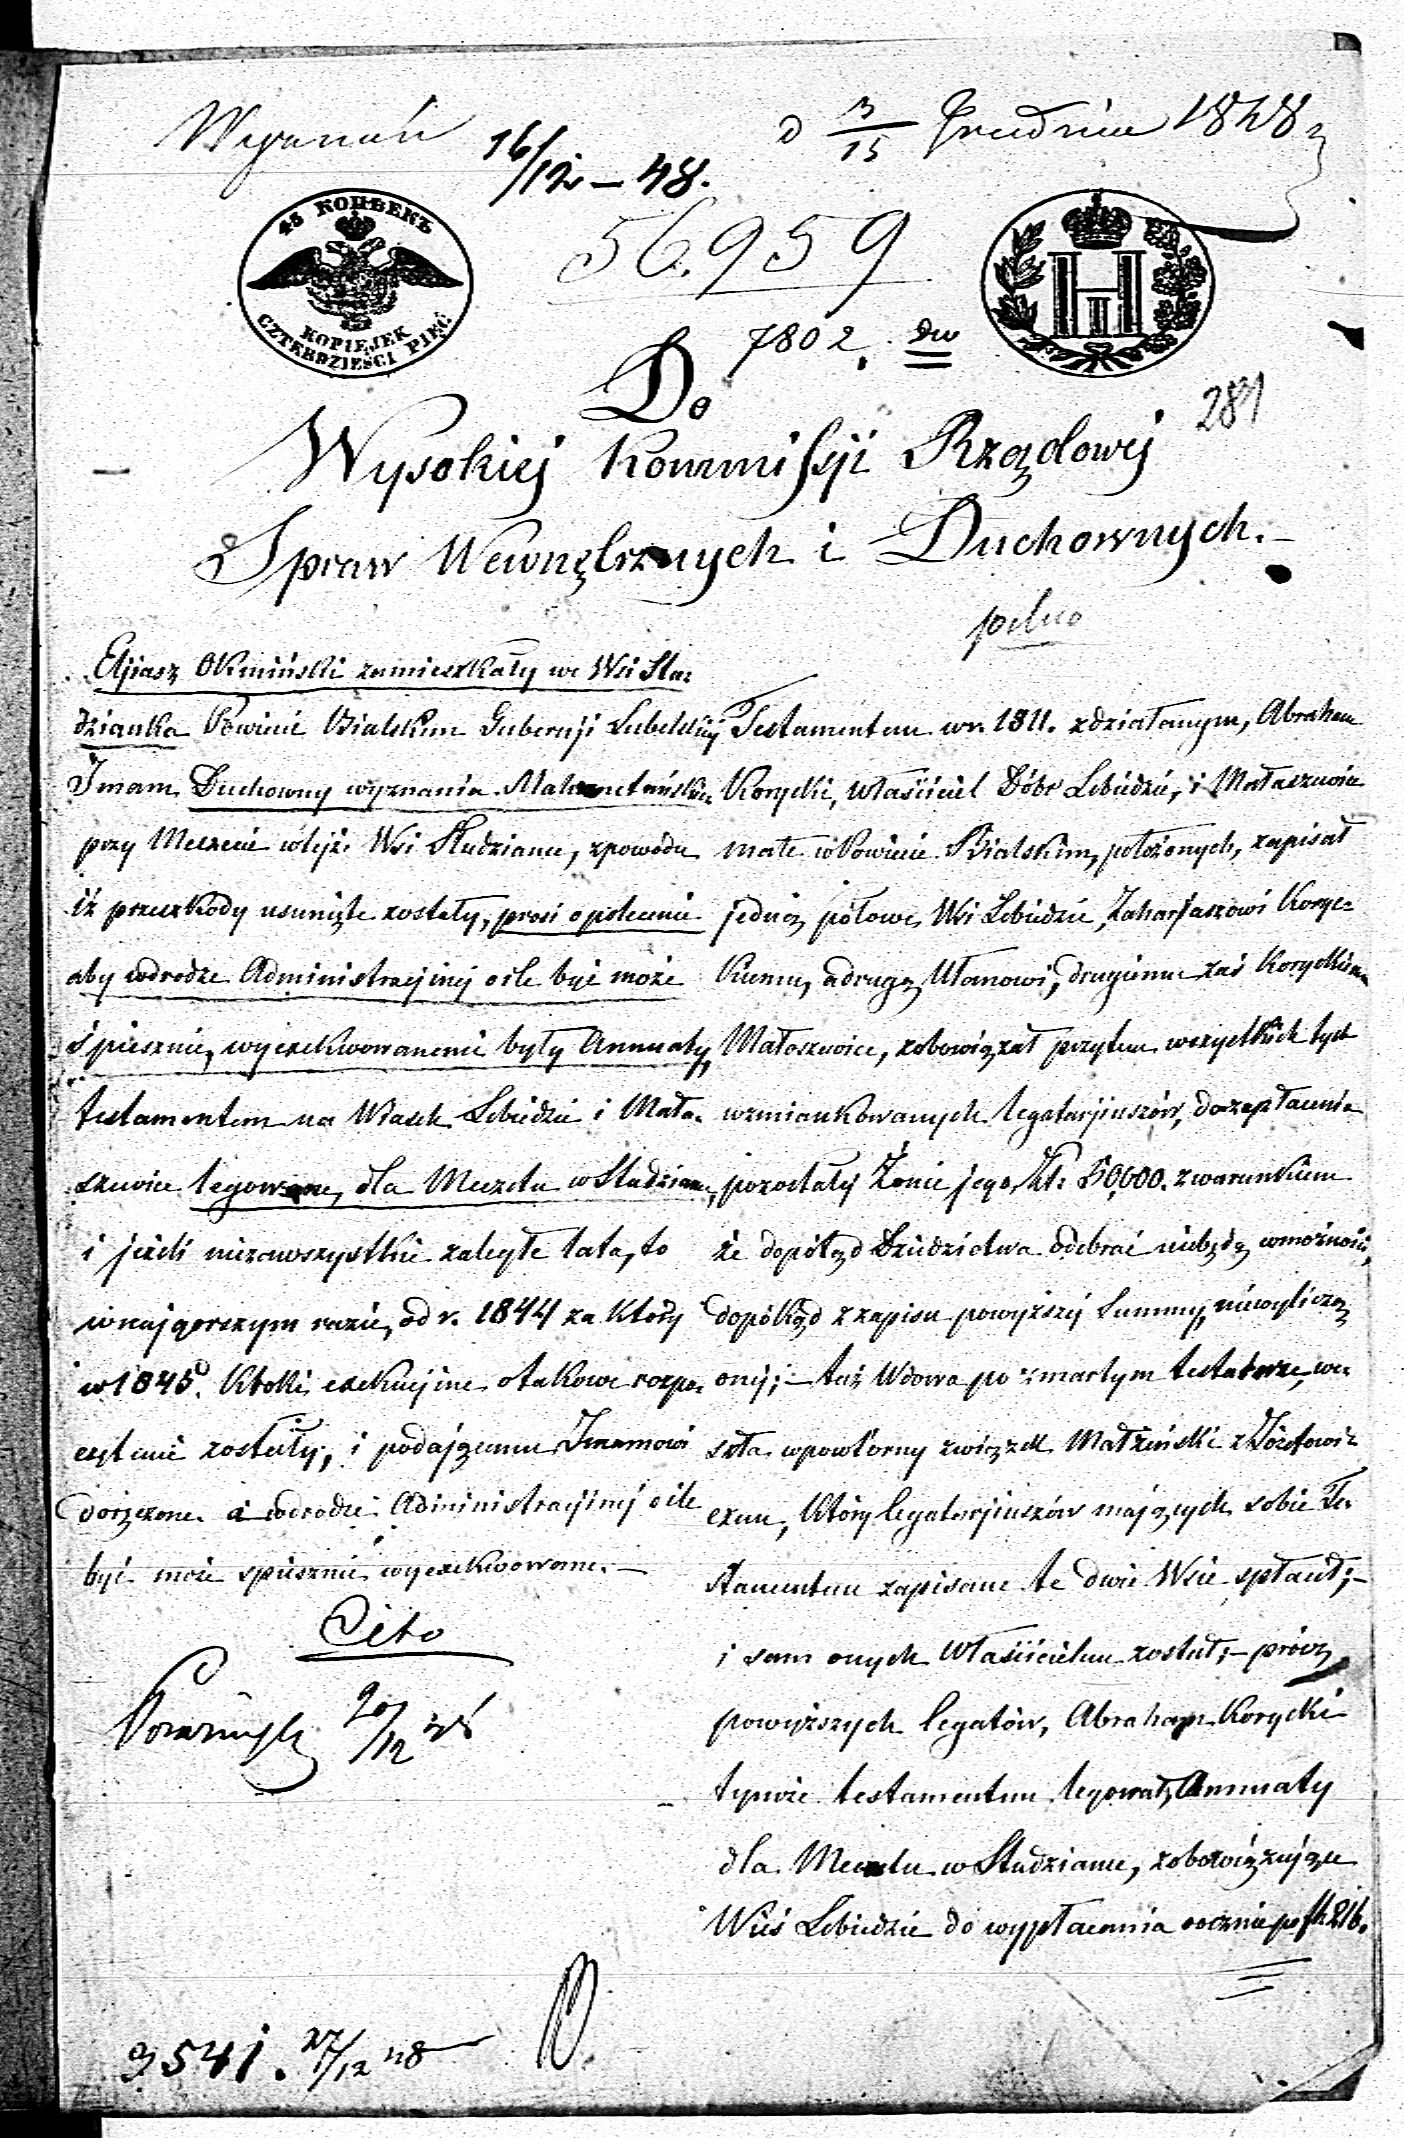 Wyznań
16/12 – 48.
d 3/15 Grudnia 1848
45 КОПѢЕКЪ
KOPIEJEK
CZTERDZIEŚCI PIĘĆ
56.959
7802.
281
Do
Wysokiej Kommissji Rządowej
Spraw Wewnętrznych i Duchownych.–
pilno
Eljasz Okmiński zamieszkały we Wsi Stu=
dzianka Powiecie Bialskim Gubernji Lubelskiej
Imam Duchowny wyznania Mahometańskie
przy Meczecie w tejże Wsi Studziance, z powodu
iż przeszkody usunięte zostały, prosi o polecenie
aby w drodze Administracyjnej o ile być może
śpiesznie, wyexekwowanemi były Annuaty
testamentem na Wsiach Lebiedzie i Mała=
szewice legowane, dla Meczetu w Studziance,
i jeżeli nie za wszystkie zaległe lata, to
w najgorszym razie, od r. 1844 za który
w 1845. Kroki exekucyjne o takowe rozpo=
częte nie zostały, i podającemu Imamowi
doręczone a w drodze Administracyjnej o ile
być może spiesznie wyexekwowane.–
Cito
20/12 48
9541. 27/12 48
Testamentem w r. 1811. zdziałanym, Abraham
Korycki, właściciel Dóbr Lebiedzie, i Małaszewice
małe w Powiecie Bialskim, położonych, zapisał
jedną połowę Wsi Lebiedzie, Zaharjaszowi Koryc=
kiemu, a drugą Ułanowi, drugiemu zaś Koryckiemu
Małaszewice, zobowiązał przytem wszystkich tych
wzmiankowanych legatarjuszów, do zapłacenia
pozostałej Żonie jego, Złt: 50,000. z warunkiem
że dopótąd Dziedzictwa odebrać niebędą w możności,
dopókąd z zapisu powyższej Summy, niewyliczą
onej;– taż Wdowa po zmarłym testatorze, we=
szła w powtórny związek Małżeński z Józefowi=
czem, który legatarjuszów mających sobie Te=
stamentem zapisane te dwie Wsie spłacił;–
i sam onych Właścicielem został;– prócz
powyższych legatów, Abraham Korycki
tymże testamentem legował, Annuaty
dla Meczetu w Studziance, zobowiązując
Wieś Lebiedzie do wypłacania rocznie po fl. 216.